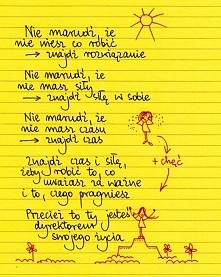 Nie marudź, że
nie wiesz co robić
→ znajdź rozwiązanie
Nie marudź, że
nie masz siły
→ znajdź siłę w sobie
Nie marudź, że
nie masz czasu
→ znajdź czas
+ chęć
Znajdź czas i siłę,
żeby robić to, co
uważasz za ważne
i to, czego pragniesz
Przecież to ty jesteś
dyrektorem
swojego życia